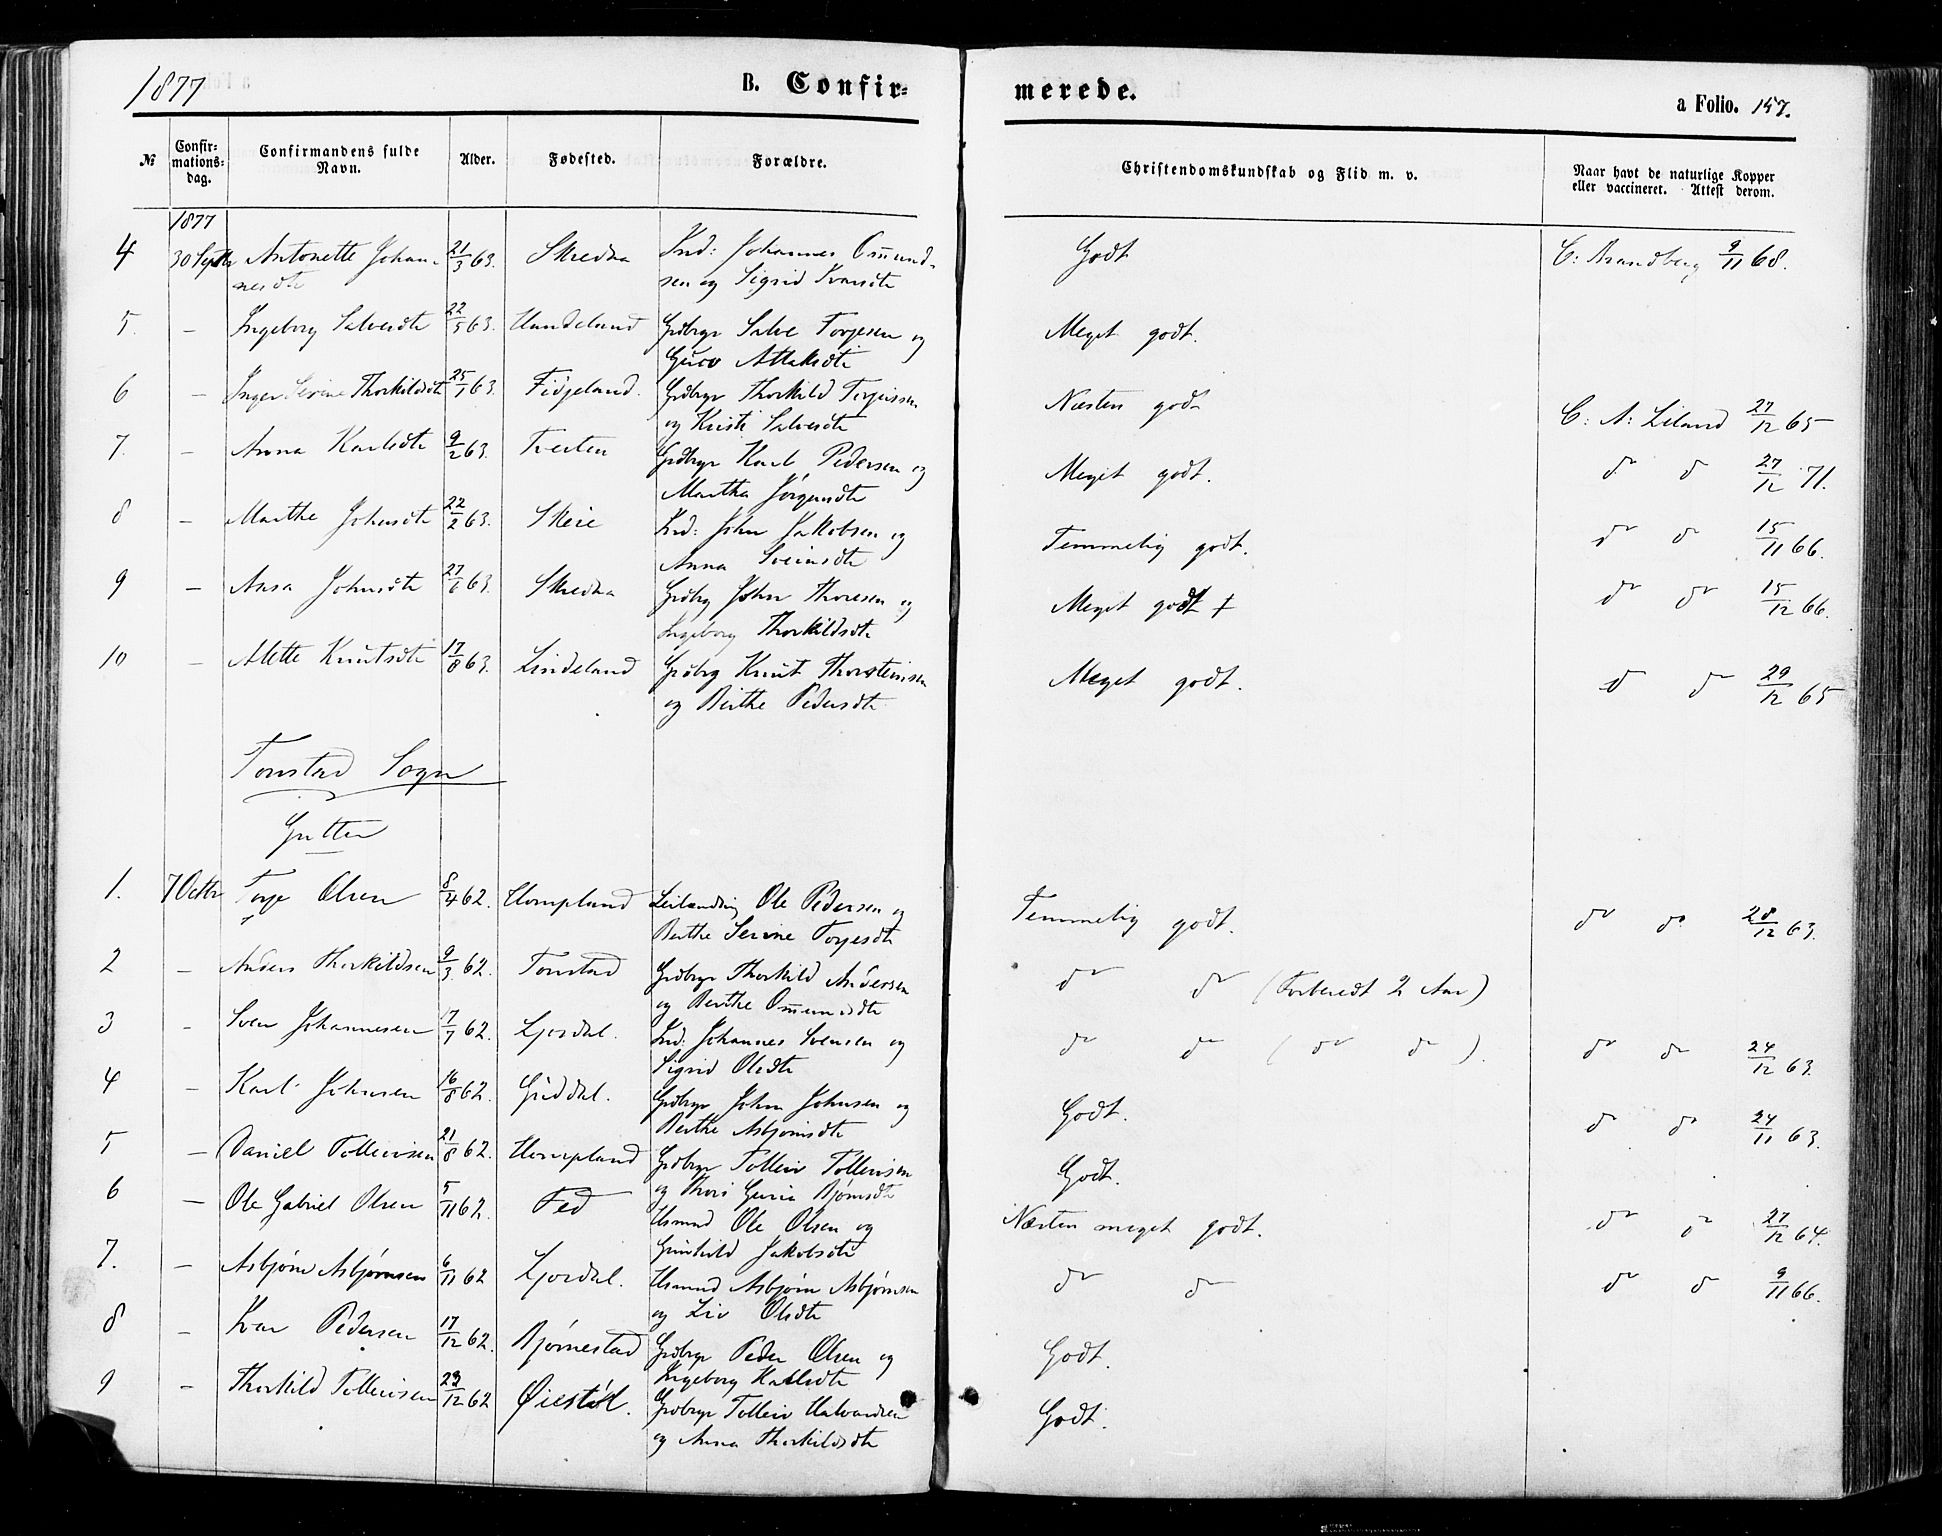 1877 B. Confir= merede. a Folio. 157.
№ Confir=mations=dag. Confirmandens fulde Navn. Alder. Fødested. Forældre. Christendomskundskab og Flid m. v. Naar havt de naturlige Kopper eller vaccineret. Attest derom.
1877
4 30 Septbr Antonette Johan- 21/3 63. Skredaa Ind: Johannes Omund- Godt C: Brandberg 9/11 68.
nesdtr sen og Sigrid Ivarsdtr
5. – Ingeborg Salvesdtr 22/5 63. Haudeland Grdbrgr Salve Torjesen og Meget godt.
Guro Atlaksdtr
6 – Inger Serine Thorkildsdtr 25/1 63. Fidjeland. Grdbrgr Thorkild Torjussen Næsten godt
og Kristi Salvesdtr C: A: Liland 27/12 65
7. – Anna Karlsdtr 9/2 63. Tveiten Grdbrgr Karl Pedersen og Meget godt. do do 27/12 71.
Martha Jørgensdtr
8 – Marthe Johnsdtr 22/2 63. Skeie Ind: John Jakobsen og Temmelig godt. do do 15/11 66.
Anna Sveinsdtr
9 – Aasa Johnsdtr 27/6 63. Skredaa Grdbrg John Thoresen og Meget godt + do do 15/12 66.
Ingeborg Thorkildsdtr
10 – Alette Knutsdtr 17/8 63. Lindeland Grdbrg Knut Thorsteinsen Meget godt. do do 29/12 65
og Berthe Pedersdtr
Tonstad Sogn
Gutter
1. 7 Octbr Torje Olsen 8/4 62. Hompland Leilænding Ole Pedersen og Temmelig godt. do do 28/12 63.
Berthe Serine Torjesdtr
2 – Anders Thorkildsen 9/3 62. Tonstad Grdbrgr Thorkild Andersen do do (Forberedt 2 Aar)
og Berthe Omundsdtr
3 – Sven Johannesen 17/7 62. Ljosdal. Ind: Johannes Svensen og do do ( do do ). do do 24/12 63.
Sigrid Olsdtr
4 – Karl Johnsen 16/8 62. Guddal. Grdbrgr John Johnsen og Godt. do do 24/11 63.
Berthe Asbjørnsdtr
5 – Daniel Tollevsen 21/8 62. Hompland Grdbrgr Tollew Tollevsen Godt.
og Guria Bjørnsdtr
6 – Ole Gabriel Olsen 5/11 62. Fed Husmand Ole Olsen og Næsten meget godt. do do 27/12 64.
Gunhild Jakobsdtr
7. – Asbjørn Asbjørnsen 6/11 62 Ljosdal. Husmand Asbjørn Asbjørnsen do do do do 9/11 66.
og Liv Olsdtr
8 – Ivar Pedersen 17/12 62. Bjørnestad Grdbrgr Peder Olsen og Godt.
Ingeborg Karlsdtr
9 – Thorkild Tollevsen 29/12 62 Øiestøl. Grdbrgr Tollew Halvardsen Godt.
og Anna Thorkildsdtr